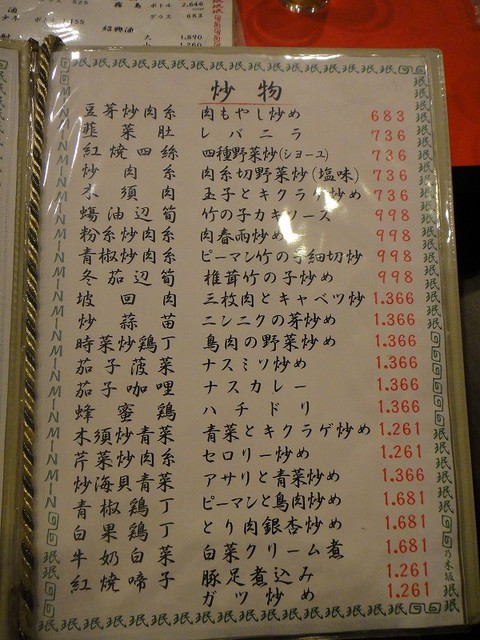 炒物
豆芽炒肉糸 肉もやし炒め 683
韮菜肚 レバニラ 736
紅焼四絲 四種野菜炒(ショーユ) 736
炒肉糸 肉糸切野菜炒(塩味) 736
木須肉 玉子とキクラゲ炒め 736
油辺筍 竹の子カキソース 998
粉糸炒肉糸 肉春雨炒め 998
青椒炒肉糸 ピーマン竹の子細切炒 998
冬茄辺筍 椎茸竹の子炒め 998
坡回肉 三枚肉とキャベツ炒 1.366
炒蒜苗 ニンニクの芽炒め 1.366
時菜炒鶏丁 鳥肉の野菜炒め 1.366
茄子菠菜 ナスミソ炒め 1.366
茄子咖哩 ナスカレー 1.366
蜂蜜鶏 ハチドリ 1.366
木須炒青菜 青菜とキクラゲ炒め 1.261
芹菜炒肉糸 セロリー炒め 1.261
炒海貝青菜 アサリと青菜炒め 1.366
青椒鶏丁 ピーマンと鳥肉炒め 1.681
白果鶏丁 とり肉銀杏炒め 1.681
牛奶白菜 白菜クリーム煮 1.681
紅焼啼子 豚足煮込み 1.261
ガツ炒め 1.261
乃木坂